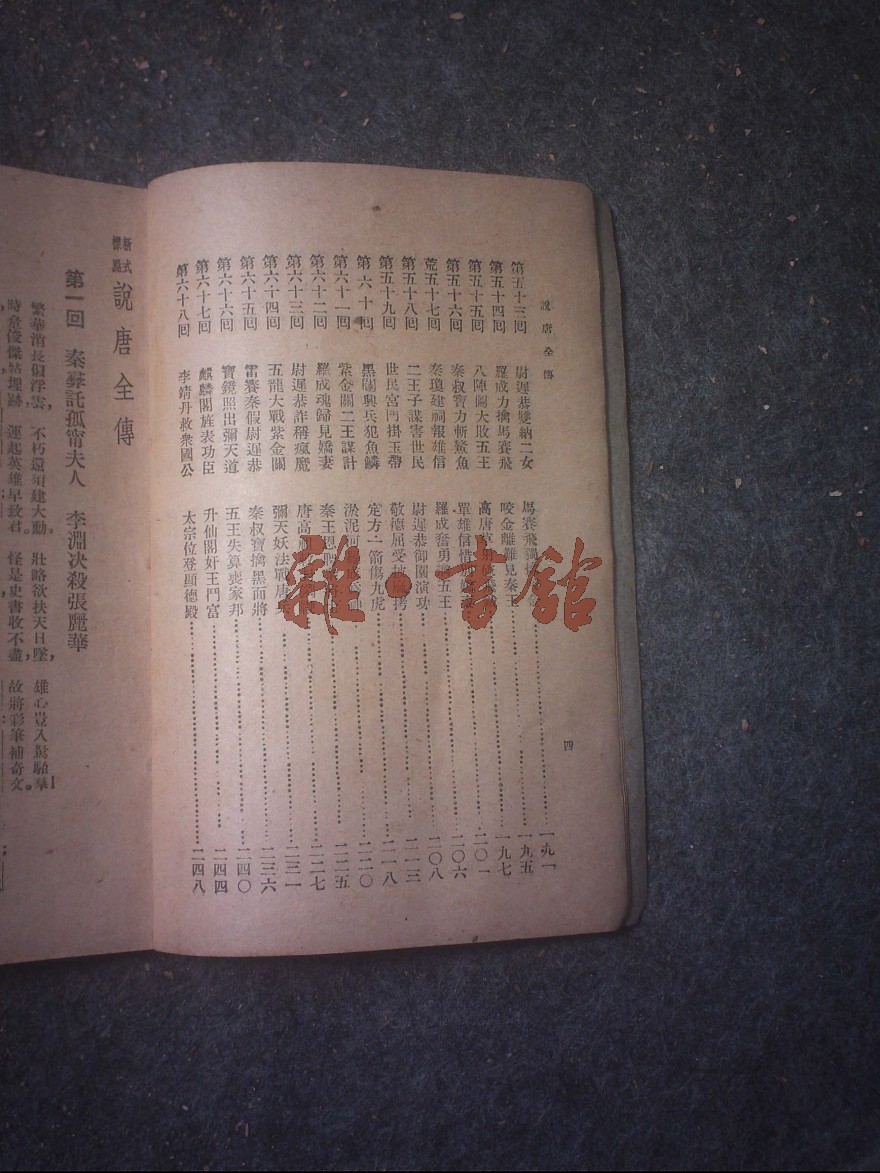 說唐全傳
第五十三回 尉遲恭雙納二女 馬賽飛 一九一
第五十四回 羅成力擒馬賽飛 咬金離難見秦王 一九五
第五十五回 八陣圖大敗五王 高唐草 一九七
第五十六回 秦叔寶力斬鰲魚 單雄信惜 二〇一
荒五十七回 秦瓊建祠報雄信 羅成奮勇 五王 二〇六
第五十八回 二王子謀害世民 尉遲恭御園演功 二〇八
第五十九回 世民宮門掛玉帶 敬德屈受 拷 二一三
第六十回 黑闥興兵犯魚鱗 定方一箭傷九虎 二一八
第六十一回 紫金關二王謀計 淤泥河 二二〇
第六十二回 羅成魂歸見嬌妻 秦王恩 二二五
第六十三回 尉遲恭詐稱瘋魔 唐高祖 二二七
第六十四回 五龍大戰紫金關 彌天妖法戰唐兵 二三一
第六十五回 雷賽秦假尉遲恭 秦叔寶擒黑面將 二三六
第六十六回 寶鏡照出彌天道 五王失算喪家邦 二四〇
第六十七回 麒麟閣旌表功臣 升仙閣奸王鬥富 二四四
第六十八回 李靖丹救衆國公 太宗位登顯德殿 二四八
四
雜·書館
新式標點 說唐全傳
第一回 秦彝託孤甯夫人 李淵決殺張麗華
繁華消長似浮雲， 不朽還須建大勳。 壯略欲扶天日墜， 雄心豈入駑駘羣
時危俊傑姑埋跡， 運起英雄早致君。 怪是史書收不盡， 故將彩筆補奇文。